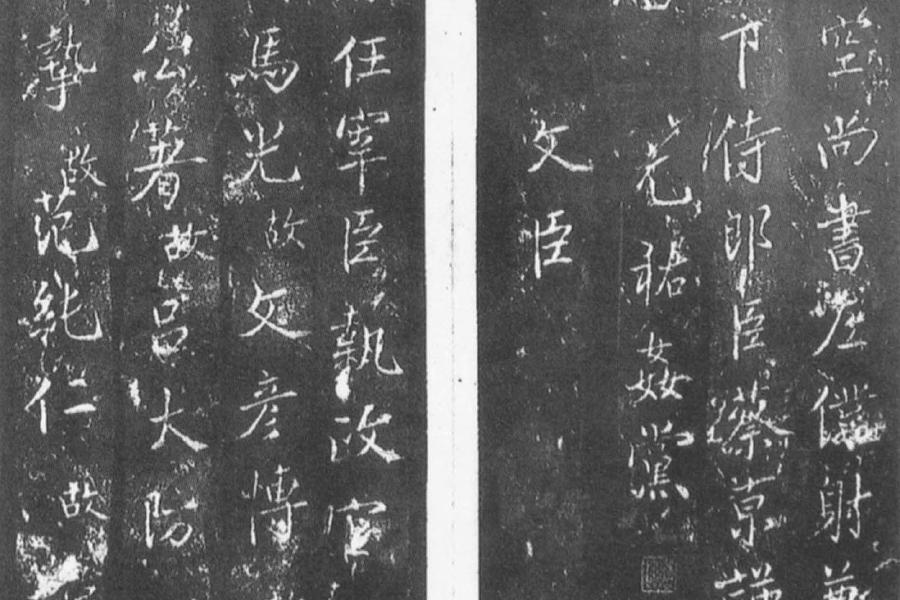 空尚書左僕射兼
下侍郎臣蔡京謹
元祐姦黨
文臣
任宰臣執政官
馬光故 文彦博
公著故 呂大防
摯故 范純仁故